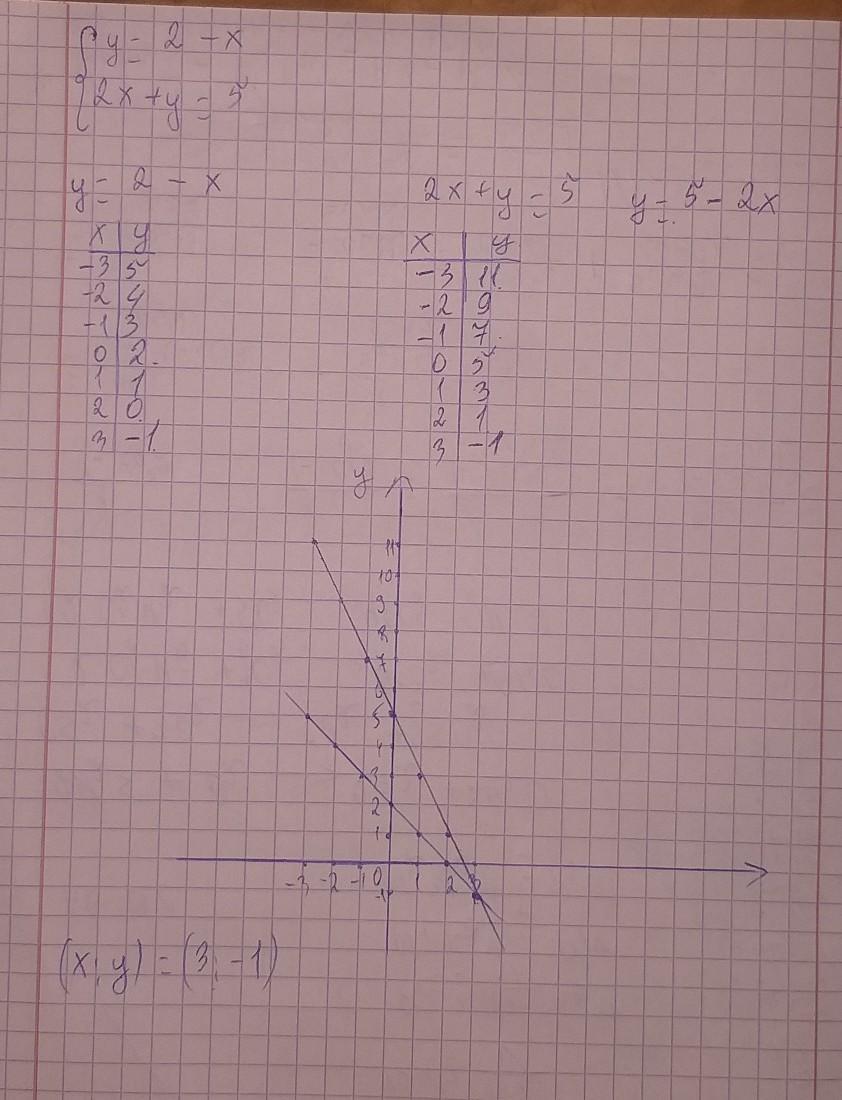 y = 2 - x
2x + y = 5
y = 2 - x
2x + y = 5 y = 5 - 2x
x y
-3 5
-2 4
-1 3
0 2
1 1
2 0
3 -1
x y
-3 11
-2 9
-1 7
0 5
1 3
2 1
3 -1
y
11
10
9
8
7
6
5
4
3
2
1
-3 -2 -1 0 1 2 3
-1
(x; y) = (3; -1)